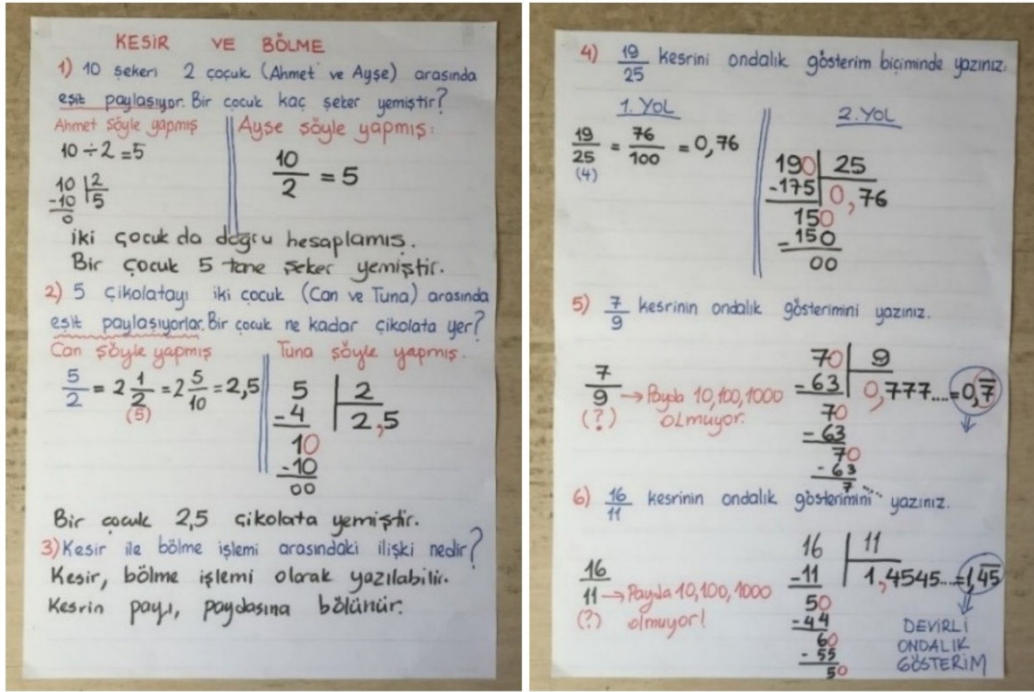 KESİR VE BÖLME
1) 10 şekeri 2 çocuk (Ahmet ve Ayşe) arasında
eşit paylaşıyor. Bir çocuk kaç şeker yemiştir?
Ahmet şöyle yapmış
10 ÷ 2 = 5
10 | 2
-10 | 5
0
Ayşe şöyle yapmış:
10/2 = 5
İki çocuk da doğru hesaplamış.
Bir çocuk 5 tane şeker yemiştir.
2) 5 çikolatayı iki çocuk (Can ve Tuna) arasında
eşit paylaşıyorlar. Bir çocuk ne kadar çikolata yer?
Can şöyle yapmış
5/2 = 2 1/2 = 2 5/10 = 2,5
(5)
Tuna şöyle yapmış.
5 | 2
-4 | 2,5
10
-10
00
Bir çocuk 2,5 çikolata yemiştir.
3) Kesir ile bölme işlemi arasındaki ilişki nedir?
Kesir, bölme işlemi olarak yazılabilir.
Kesrin payı, paydasına bölünür.
4) 19/25 kesrini ondalık gösterim biçiminde yazınız.
1. YOL
19/25 = 76/100 = 0,76
(4)
2. YOL
190 | 25
-175 | 0,76
150
-150
00
5) 7/9 kesrinin ondalık gösterimini yazınız.
7/9 → Payda 10,100,1000
(?) olmuyor.
70 | 9
-63 | 0,777....=0,7̅
70
-63
70
-63
7....
6) 16/11 kesrinin ondalık gösterimini yazınız.
16/11 → Payda 10,100,1000
(?) olmuyor!
16 | 11
-11 | 1,4545...=1,4̅5̅
50
-44
60
-55
50
DEVİRLİ
ONDALIK
GÖSTERİM